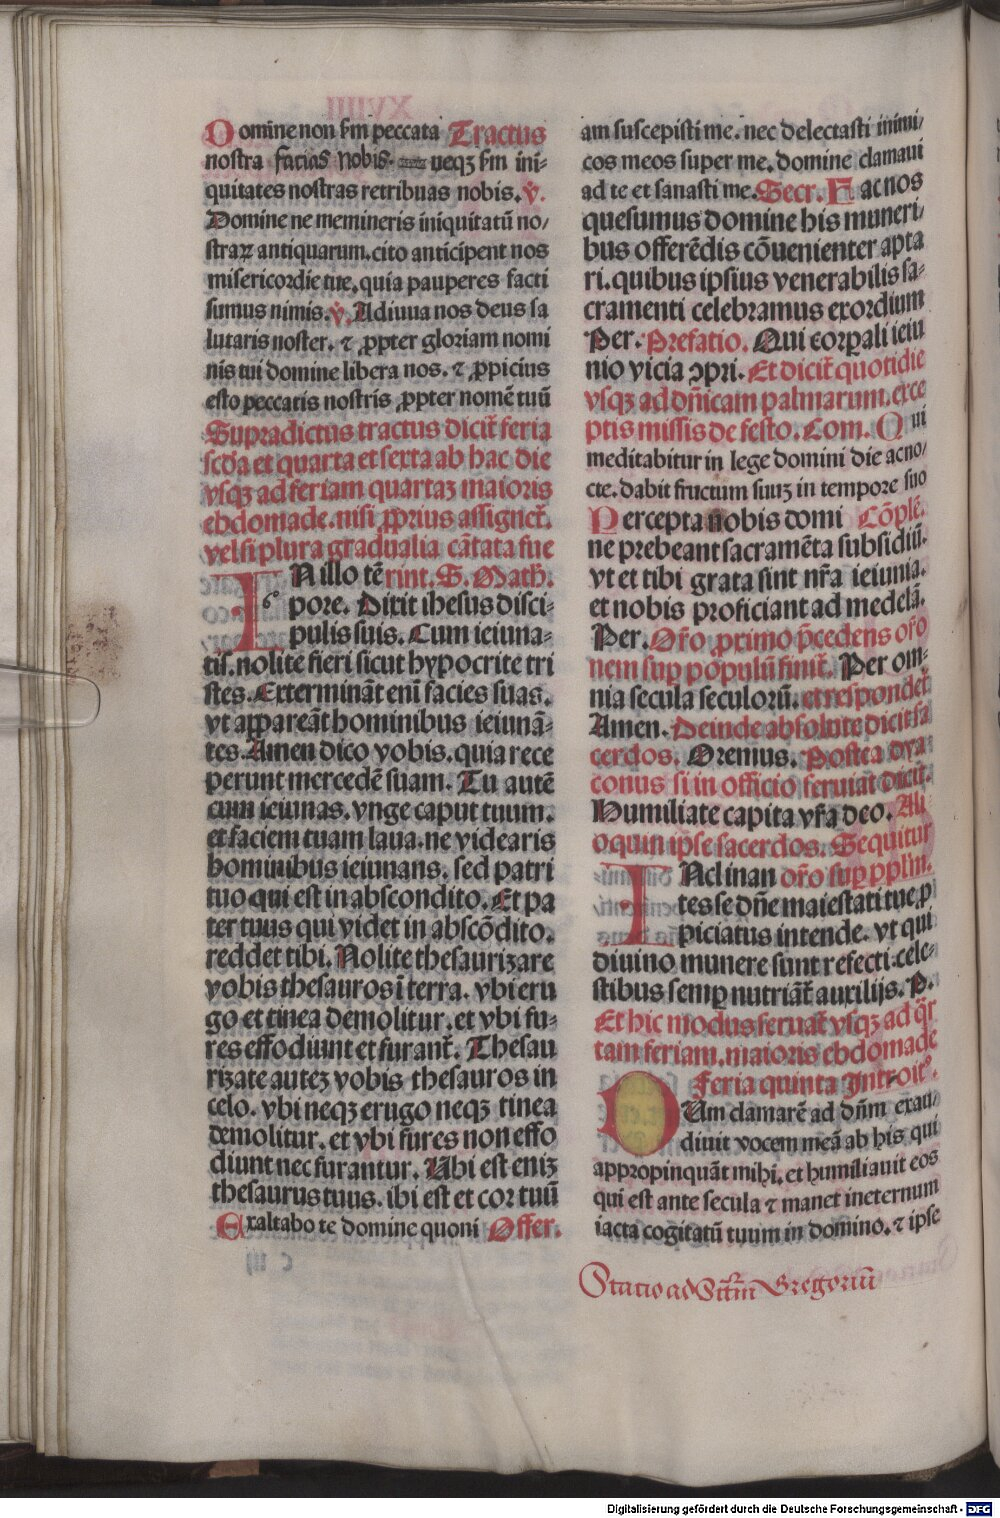 Domine non ẜm peccata Tractus
nostra facias nobis. neqꝫ ẜm ini-
quitates nostras retribuas nobis. ℣.
Domine ne memineris iniquitatū no/
straꝝ antiquarum. cito anticipent nos
misericordie tue, quia pauperes facti
sumus nimis. ℣. Adiuua nos deus sa
lutaris noster. ⁊ ꝓpter gloriam nomi
nis tui domine libera nos. ⁊ ꝓpicius
esto peccatis nostris ꝓpter nomē tuū
Supradictus tractus dicit̄ feria
scḋa et quarta et sexta ab hac die
vsqꝫ ad feriam quartaꝫ maioris
ebdomade. nisi ꝓprius assignet̄.
vel si plura gradualia cātata fue
IN illo tē rint. S. Math̄.
pore. Dixit ihesus disci-
pulis suis. Cum ieiuna-
tis. nolite fieri sicut hypocrite tri
stes. Extermināt enī facies suas.
vt appareāt hominibus ieiunā-
tes. Amen dico vobis. quia rece
perunt mercedē suam. Tu autē
cum ieiunas. vnge caput tuum.
et faciem tuam laua. ne videaris
hominibus ieiunans. sed patri
tuo qui est in abscondito. Et pa
ter tuus qui videt in abscōdito.
reddet tibi. Nolite thesaurizare
vobis thesauros ī terra. vbi eru
go et tinea demolitur. et vbi fu-
res effodiunt et furant̄. Thesau
rizate auteꝫ vobis thesauros in
celo. vbi neqꝫ erugo neqꝫ tinea
demolitur. et vbi fures non effo
diunt nec furantur. Ubi est eniꝫ
thesaurus tuus. ibi est et cor tuū
Exaltabo te domine quoni Offer.
am suscepisti me. nec delectasti inimi/
cos meos super me. domine clamaui
ad te et sanasti me. Secr. Fac nos
quesumus domine his muneri/
bus offerēdis cōuenienter apta
ri. quibus ipsius venerabilis sa-
cramenti celebramus exordium
Per. Prefatio. Qui corꝑali ieiu
nio vicia ↄpri. Et dicit̄ quotidie
vsqꝫ ad dn̄icam palmarum. exce
ptis missis de festo. Com. Qui
meditabitur in lege domini die acno/
cte. dabit fructum suuꝫ in tempore suo
Percepta nobis domi Cōple.
ne prebeant sacramēta subsidiū.
vt et tibi grata sint nr̄a ieiunia.
et nobis proficiant ad medelā.
Per. Or̄o primo p̄cedens or̄o
nem suꝑ populū finit̄. Per om-
nia secula seculorū. et respondet̄
Amen. Deinde absolute dicit sa
cerdos. Oremus. Postea dya
conus si in officio seruiat dicit.
Humiliate capita vr̄a deo. Ali
oquin ip̄se sacerdos. Sequitur
INclinan or̄o suꝑ pplm̄.
tes se dn̄e maiestati tue, ꝓ
piciatus intende. vt qui
diuino munere sunt refecti: cele-
stibus semꝑ nutriāt̄ auxilijs. P.
Et hic modus seruat̄ vsqꝫ ad q̄r
tam feriam. maioris ebdomade
Feria quinta Introit⁹.
DUm clamarē ad dn̄m exau/
diuit vocem meā ab his qui
appropinquāt mihi. et humiliauit eos
qui est ante secula ⁊ manet ineternum
iacta cogitatū tuum in domino. ⁊ ipse
Statio ad Sctm̄ Gregoriū
Digitalisierung gefördert durch die Deutsche Forschungsgemeinschaft - DFG